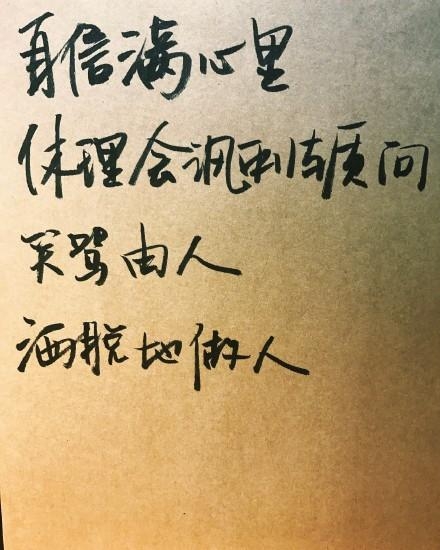 自信满心里
休理会讽刺与质问
笑骂由人
洒脱地做人